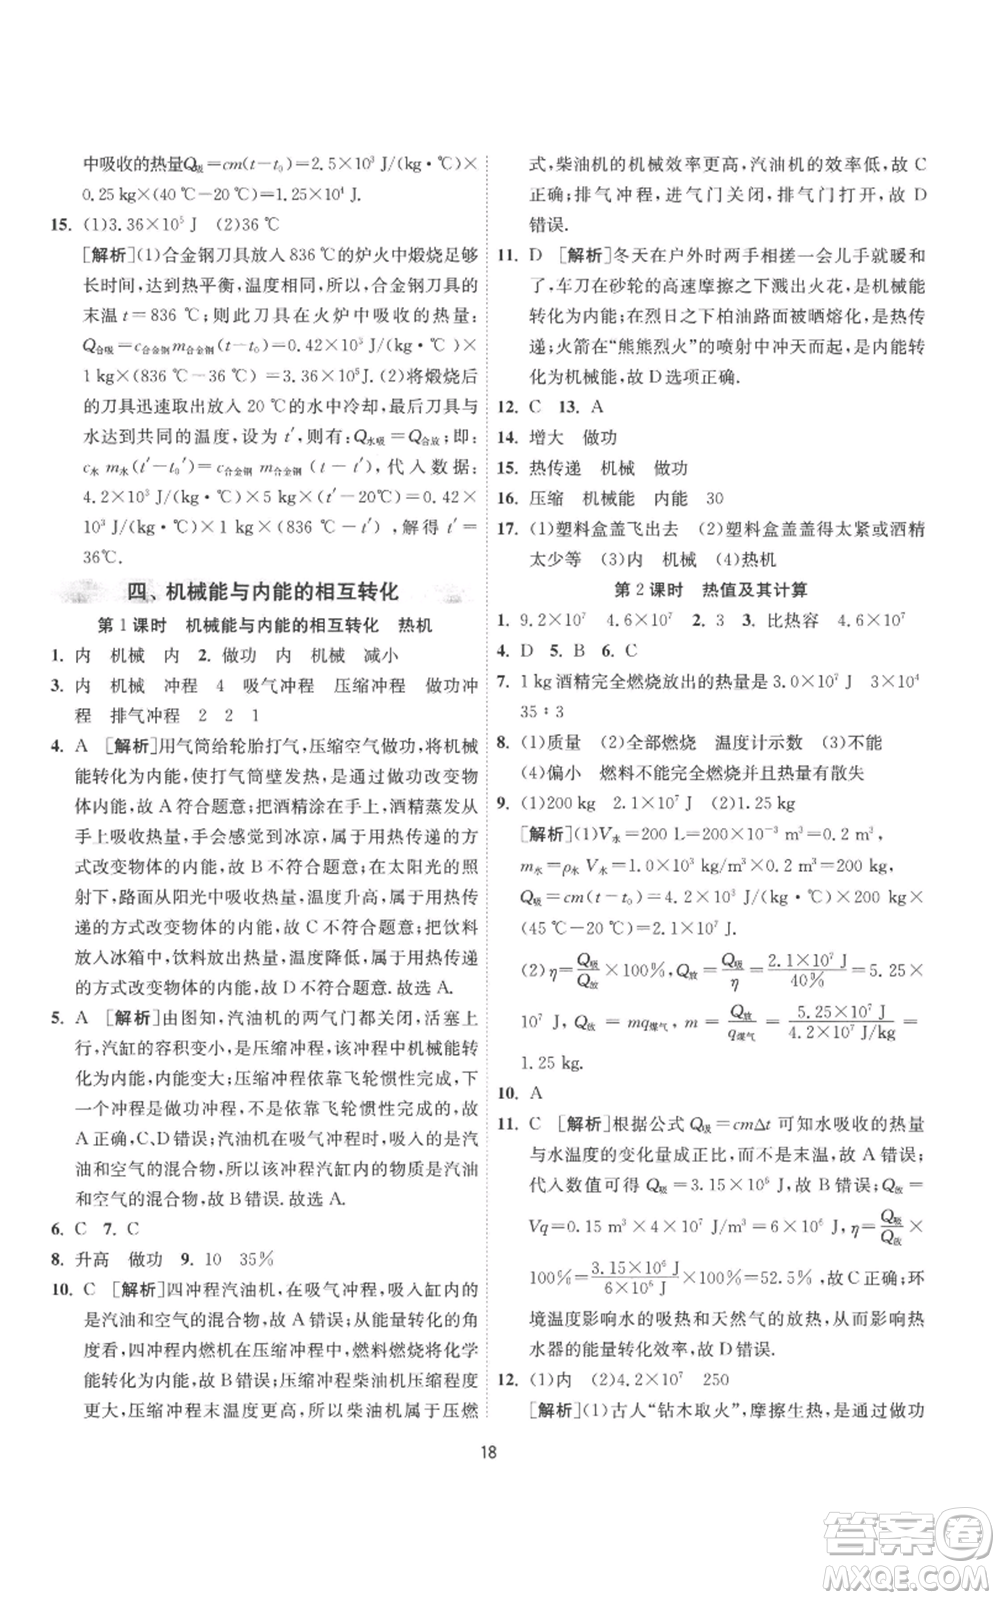 中吸收的热量Q吸=cm(t-t₀)=2.5×10³ J/(kg·℃)×
0.25 kg×(40 ℃-20 ℃)=1.25×10⁴ J.
15. (1)3.36×10⁵ J (2)36 ℃
[解析](1)合金钢刀具放入836 ℃的炉火中煅烧足够
长时间,达到热平衡,温度相同,所以,合金钢刀具的
末温 t=836 ℃;则此刀具在火炉中吸收的热量:
Q合吸=c合金钢m合金钢(t-t₀)=0.42×10³ J/(kg·℃)×
1 kg×(836 ℃-36 ℃)=3.36×10⁵J.(2)将煅烧后
的刀具迅速取出放入20 ℃的水中冷却,最后刀具与
水达到共同的温度,设为 t′,则有:Q水吸=Q合放;即:
c水 m水(t′-t₀′)=c合金钢 m合金钢(t-t′),代入数据:
4.2×10³ J/(kg·℃)×5 kg×(t′-20℃)=0.42×
10³ J/(kg·℃)×1 kg×(836 ℃-t′),解得 t′=
36℃.
四、机械能与内能的相互转化
第1课时 机械能与内能的相互转化 热机
1. 内 机械 内 2. 做功 内 机械 减小
3. 内 机械 冲程 4 吸气冲程 压缩冲程 做功冲
程 排气冲程 2 2 1
4. A [解析]用气筒给轮胎打气,压缩空气做功,将机械
能转化为内能,使打气筒壁发热,通过做功改变物体
内能,故A符合题意;把酒精涂在手上,酒精蒸发,从
手上吸收热量,手会感觉到冰凉,属于用热传递的方
式改变物体的内能,故B不符合题意;在太阳光的照
射下,路面从阳光中吸收热量,温度升高,属于用热传
递的方式改变物体的内能,故C不符合题意;将饮料
放入冰箱中,饮料放出热量,温度降低,属于用热传递
的方式改变物体的内能,故D不符合题意.故选A.
5. A [解析]由图知,汽油机的两气门都关闭,活塞上
行,汽缸的容积变小,是压缩冲程,该冲程中机械能转
化为内能,内能变大;压缩冲程依靠飞轮惯性完成,下
一个冲程是做功冲程,不是依靠飞轮惯性完成的,故
A正确,C、D错误;汽油机在吸气冲程吸入汽缸的汽
油和空气的混合物,所以该冲程汽缸内的物质是汽油
和空气的混合物,故B错误.故选A.
6. C 7. C
8. 升高 做功 9. 10 35%
10. C [解析]四冲程汽油机,在吸气冲程,吸入缸内的
是汽油和空气的混合物,故A错误;从能量转化的角
度看:四冲程内燃机在压缩冲程,燃料燃烧将化学
能转化为内能,故B错误;压缩冲程柴油机压缩程度
更大,压缩冲程末温度更高,所以柴油机属于压燃
式,柴油机的机械效率更高,汽油机的效率低,故C
正确;排气冲程,进气门关闭,排气门打开,故D
错误.
11. D [解析]冬天在户外时两手相搓一会儿手就暖和
了,车刀在砂轮的高速摩擦之下溅出火花,是机械能
转化为内能;在烈日之下柏油路面被晒熔化,是热传
递;火箭在“熊熊烈火”的喷射中冲天而起,是内能转
化为机械能,故D选项正确.
12. C 13. A
14. 增大 做功
15. 热传递 机械 做功
16. 压缩 机械能 内能 30
17. (1)塑料盒盖飞出去 (2)塑料盒盖盖得太紧或酒精
太少等 (3)内 机械 (4)热机
第2课时 热值及其计算
1. 9.2×10⁷ 4.6×10⁷ 2. 3 3. 比热容 4.6×10⁷
4. D 5. B 6. C
7. 1 kg酒精完全燃烧放出的热量是3.0×10⁷ J 3×10⁴
35∶3
8. (1)质量 (2)全部燃烧 温度计示数 (3)不能
(4)偏小 燃料不能完全燃烧并且有散失
9. (1)200 kg 2.1×10⁷ J (2)1.25 kg
[解析](1)V水=200 L=200×10⁻³ m³=0.2 m³,
m水=ρ水 V水=1.0×10³ kg/m³×0.2 m³=200 kg,
Q吸=cm(t-t₀)=4.2×10³ J/(kg·℃)×200 kg×
(45 ℃-20 ℃)=2.1×10⁷J.
(2)η=Q吸/Q放×100%,Q放=Q吸/η=2.1×10⁷ J/40%=5.25×
10⁷ J,Q放=mq煤气,m=Q放/q煤气=5.25×10⁷ J/4.2×10⁷ J/kg=
1.25 kg.
10. A
11. C [解析]根据公式 Q吸=cmΔt 可知水吸收的热量
与水温度的变化量成正比,而不是末温,故A错误;
代入数值可得 Q吸=3.15×10⁶ J,故B错误;Q放=
Vq=0.15 m³×4×10⁷ J/m³=6×10⁶ J,η=Q吸/Q放×
100%=3.15×10⁶ J/6×10⁶ J×100%=52.5%,故C正确;环
境温度影响水的吸热和天然气的放热,故影响热
水器的能量转化效率,故D错误.
12. (1)内 (2)4.2×10⁷ 250
[解析](1)古人“钻木取火”,摩擦生热,是通过做功
18
答案圈
MXQE.COM